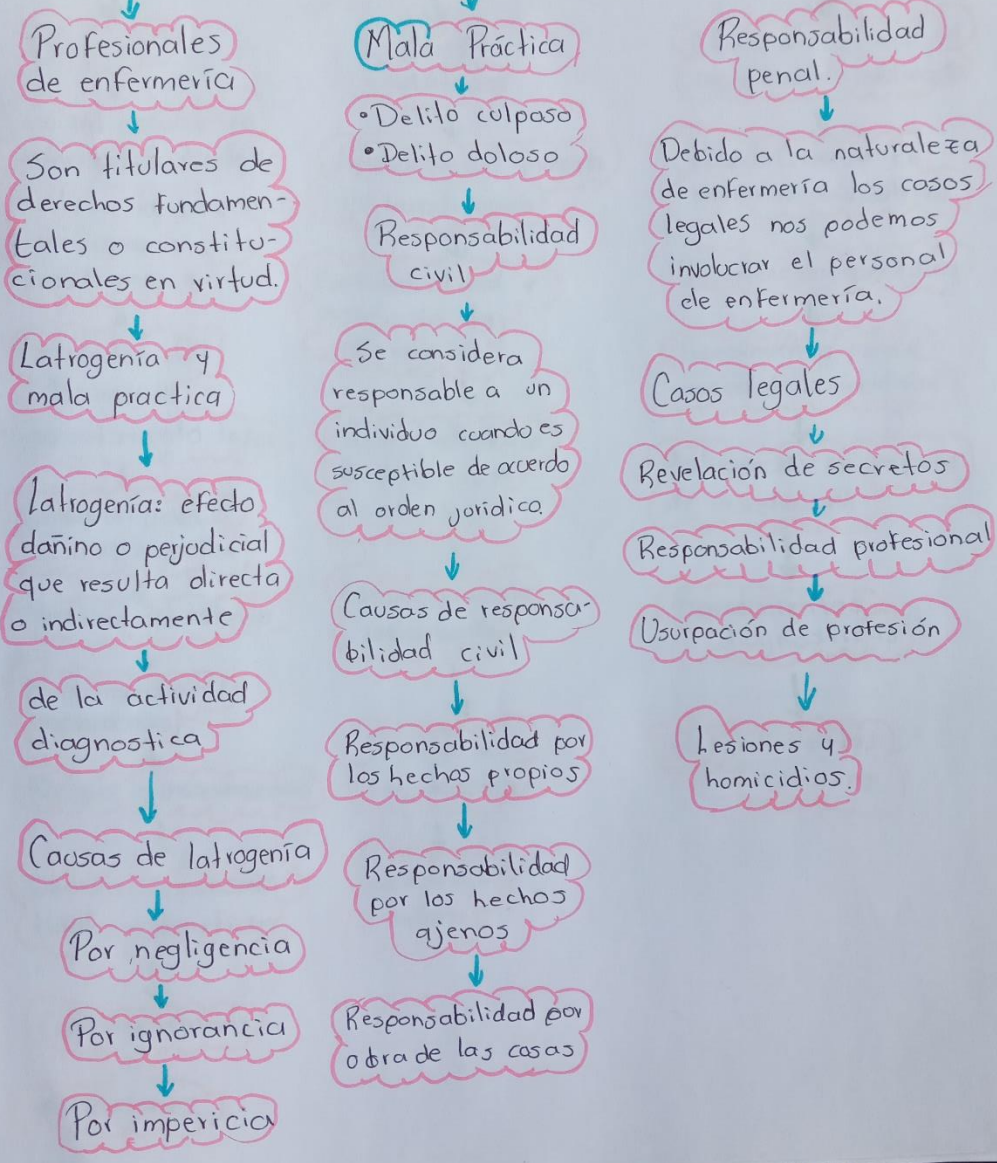 Profesionales
de enfermería
Son titulares de
derechos fundamen-
tales o constitu-
cionales en virtud.
Latrogenía y
mala practica
Latrogenía: efecto
dañino o perjodicial
que resulta directa
o indirectamente
de la actividad
diagnostica
Causas de latrogenía
Por negligencia
Por ignorancia
Por impericia
Mala Práctica
• Delito culposo
• Delito doloso
Responsabilidad
civil
Se considera
responsable a un
individuo cuando es
susceptible de acuerdo
al orden jurídico.
Causas de responsa-
bilidad civil
Responsabilidad por
los hechos propios
Responsabilidad
por los hechos
ajenos
Responsabilidad por
obra de las cosas
Responsabilidad
penal.
Debido a la naturaleza
de enfermería los casos
legales nos podemos
involucrar el personal
de enfermería.
Casos legales
Revelación de secretos
Responsabilidad profesional
Usurpación de profesión
Lesiones y
homicidios.